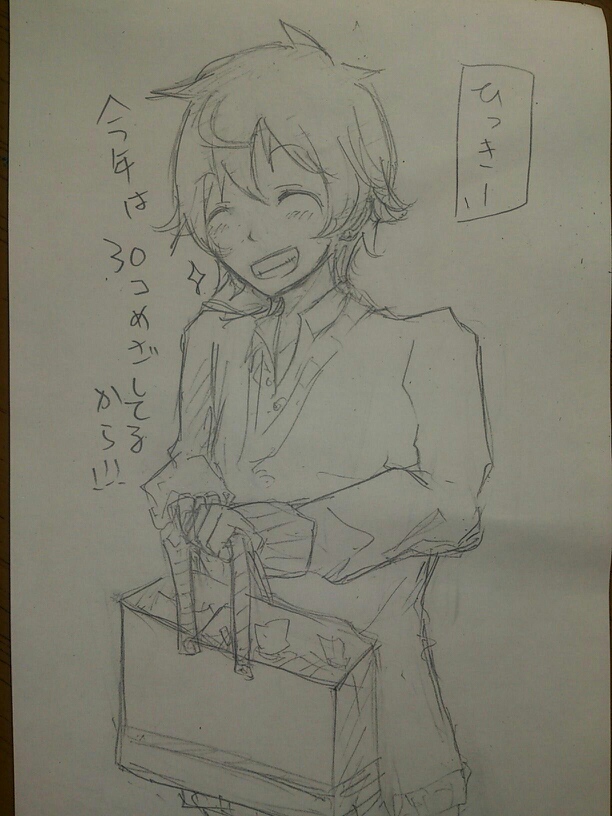 ひっき!!
今年は
30つめざしてる
から!!!